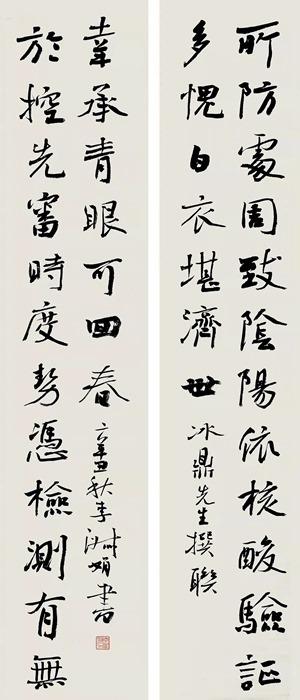 所防處周致陰陽依核酸驗証
多愧白衣堪濟世
冰鼎先生撰聯
於控先審時度勢憑檢測有無
幸承青眼可回春
辛丑秋李書